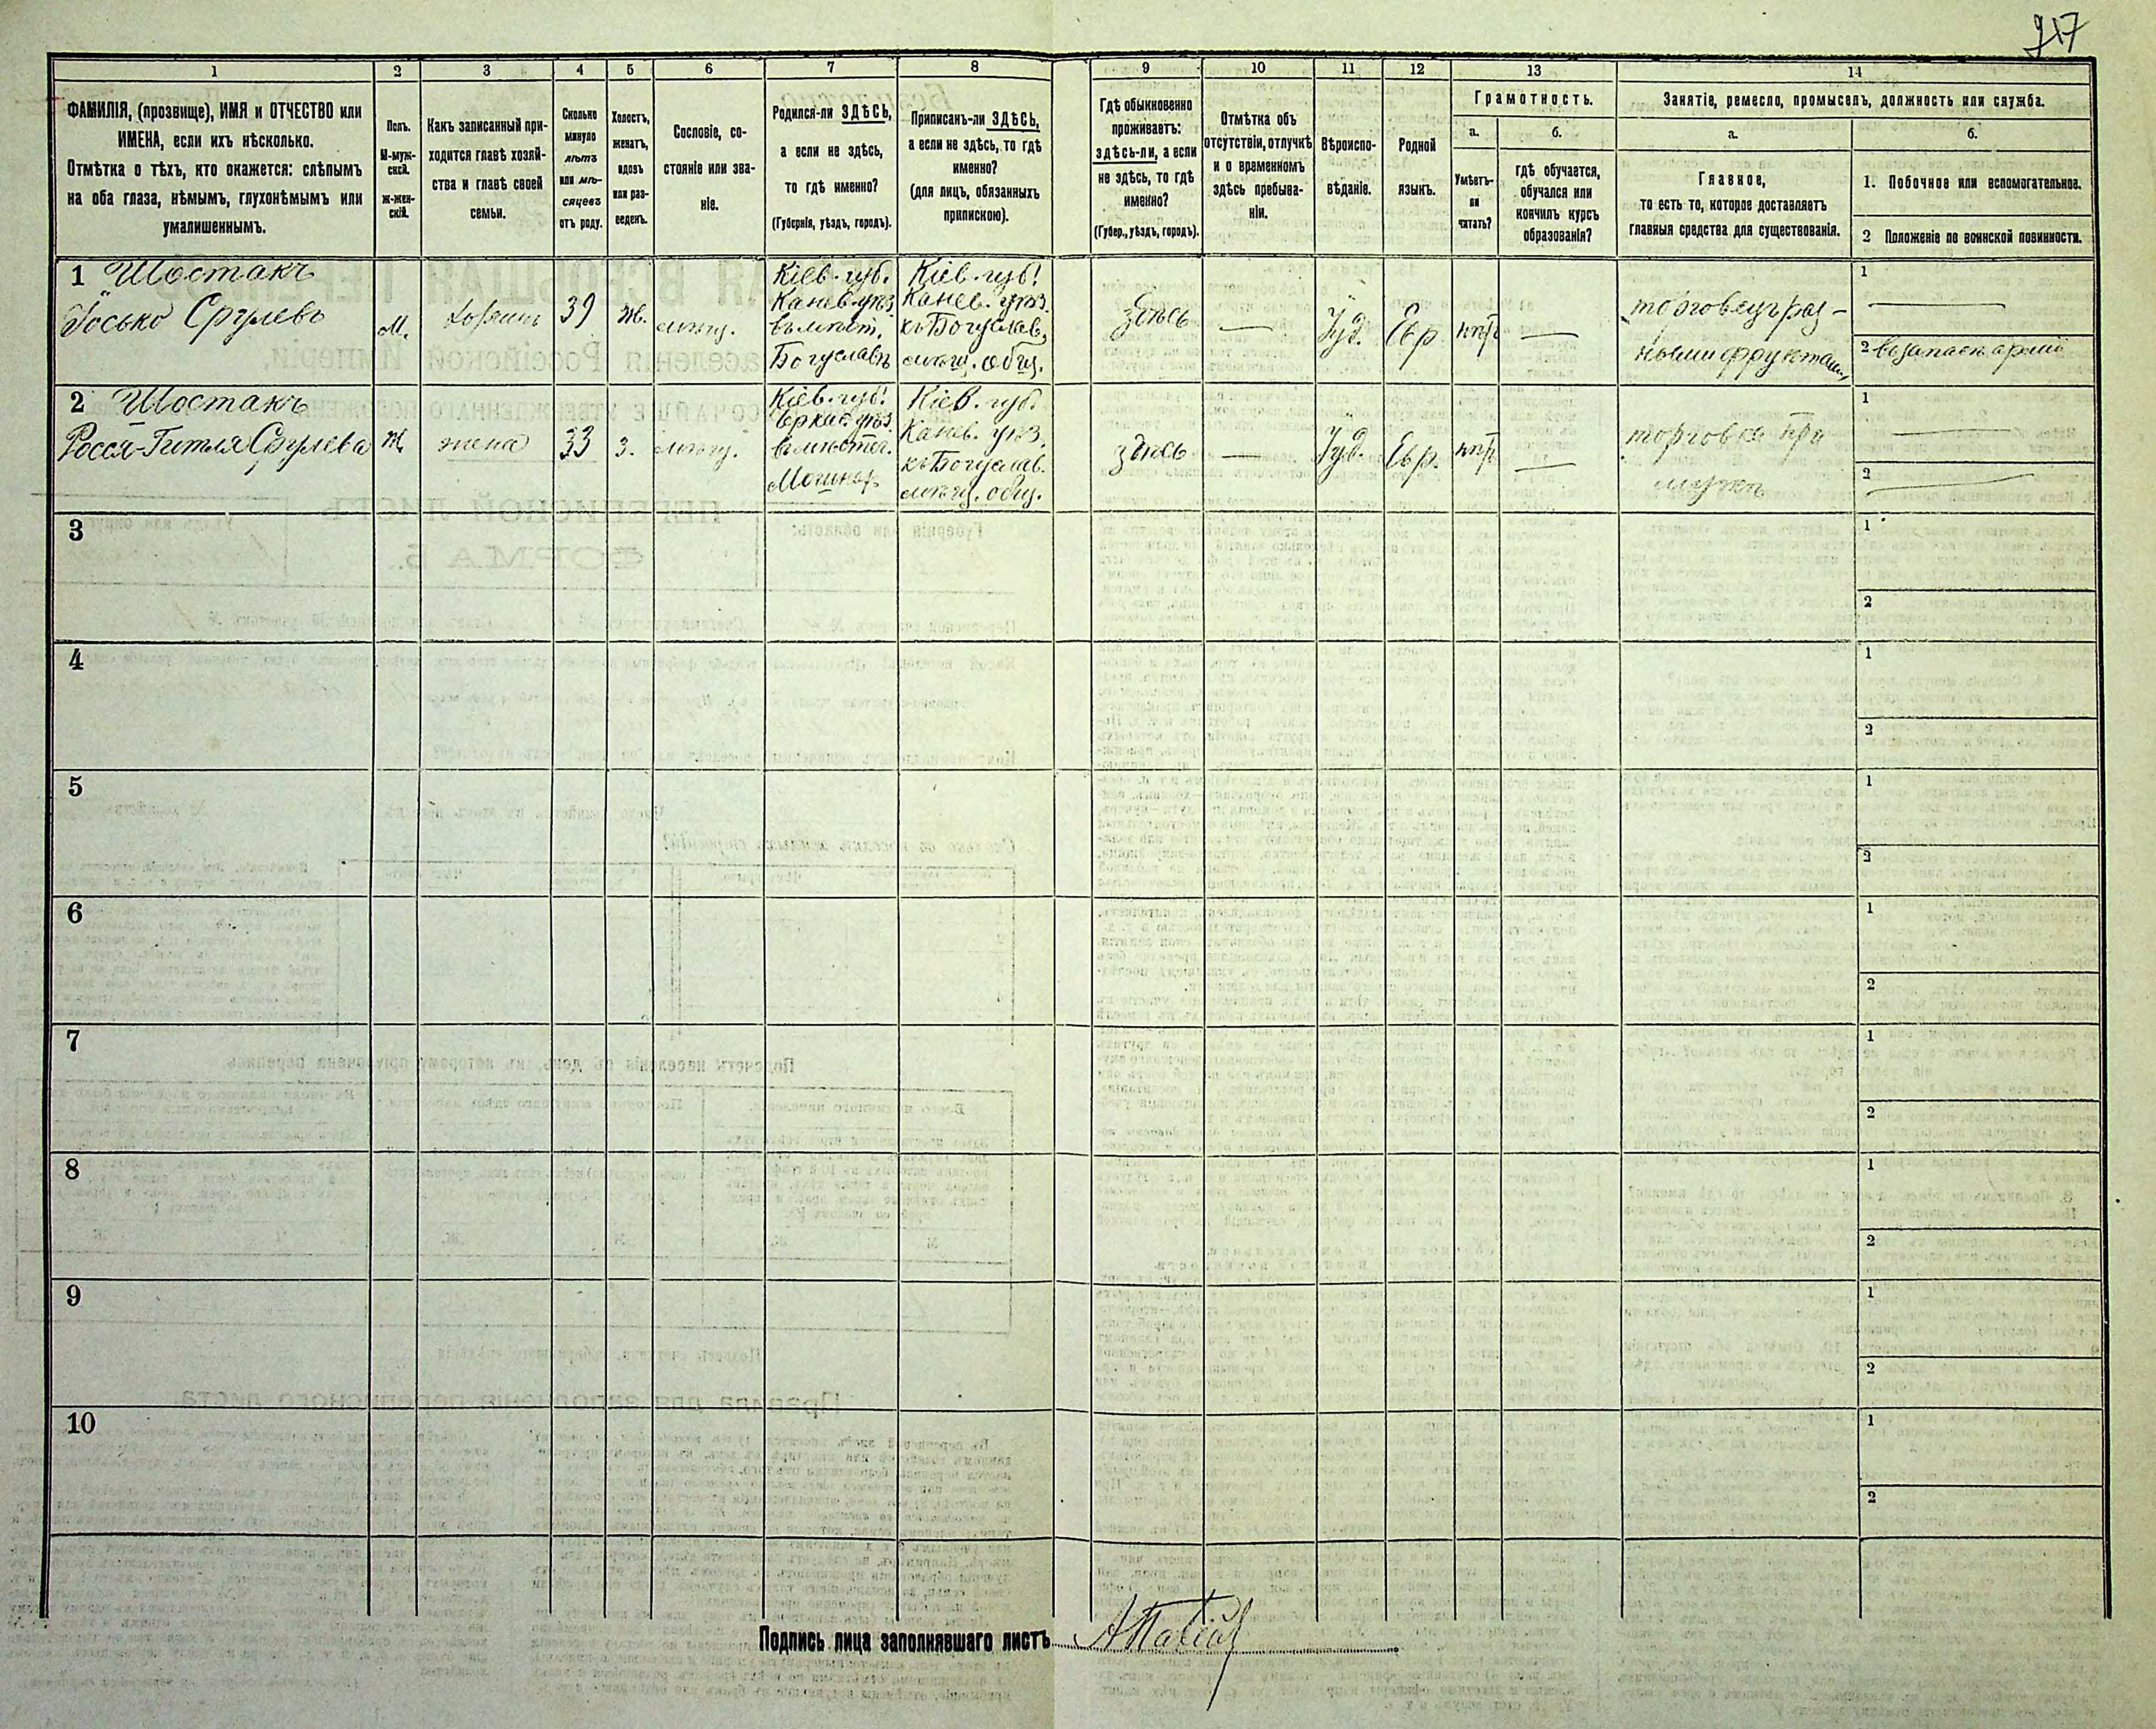 1 2 3 4 5 6 7 8 9 10 11 12 13 14
ФАМИЛІЯ, (прозвище), ИМЯ и ОТЧЕСТВО или
ИМЕНА, если ихъ нѣсколько.
Отмѣтка о тѣхъ, кто окажется: слѣпымъ
на оба глаза, нѣмымъ, глухонѣмымъ или
умалишеннымъ.
Полъ.
М-муж-
ской.
Ж-жен-
скій.
Какъ записанный при-
ходится главѣ хозяй-
ства и главѣ своей
семьи.
Сколько
минуло
лѣтъ
или мѣ-
сяцевъ
отъ роду.
Холостъ,
женатъ,
вдовъ
или раз-
веденъ.
Сословіе, со-
стояніе или зва-
ніе.
Родился-ли ЗДѢСЬ,
а если не здѣсь,
то гдѣ именно?
(Губернія, уѣздъ, городъ).
Приписанъ-ли ЗДѢСЬ,
а если не здѣсь, то гдѣ
именно?
(для лицъ, обязанныхъ
припискою).
Гдѣ обыкновенно
проживаетъ:
здѣсь-ли, а если
не здѣсь, то гдѣ
именно?
(Губер., уѣздъ, городъ).
Отмѣтка объ
отсутствіи, отлучкѣ
и о временномъ
здѣсь пребыва-
ніи.
Вѣроиспо-
вѣданіе.
Родной
языкъ.
Грамотность.
а.
Умѣетъ-
ли
читать?
б.
гдѣ обучается,
обучался или
кончилъ курсъ
образованія?
Занятіе, ремесло, промыселъ, должность или служба.
а.
Главное,
то есть то, которое доставляетъ
главныя средства для существованія.
б.
1. Побочное или вспомогательное.
2 Положеніе по воинской повинности.
1 Шостакъ
Іосько Срулевъ
М.
хозяинъ
39
ж.
мѣщ.
Кіев. губ.
Канев. уѣз.
въ мѣст.
Богуславѣ
Кіев. губ.
Канев. уѣз.
къ Богуслав.
мѣщ. общ.
здѣсь
—
Іуд.
Евр.
—
торговецъ раз-
ными фруктами
1 —
2 въ запасѣ арміи
2 Шостакъ
Росся-Гитля Срулева
Ж
жена
33
з.
мѣщ.
Кіев. губ.
Черкас. уѣз.
въ мѣстеч.
Мошнах
Кіев. губ.
Канев. уѣз.
къ Богуслав.
мѣщ. общ.
здѣсь
—
Іуд.
Евр.
—
торговка при
мужѣ
1 —
2 —
3
1
2
4
1
2
5
1
2
6
1
2
7
1
2
8
1
2
9
1
2
10
1
2
Подпись лица заполнявшаго листъ